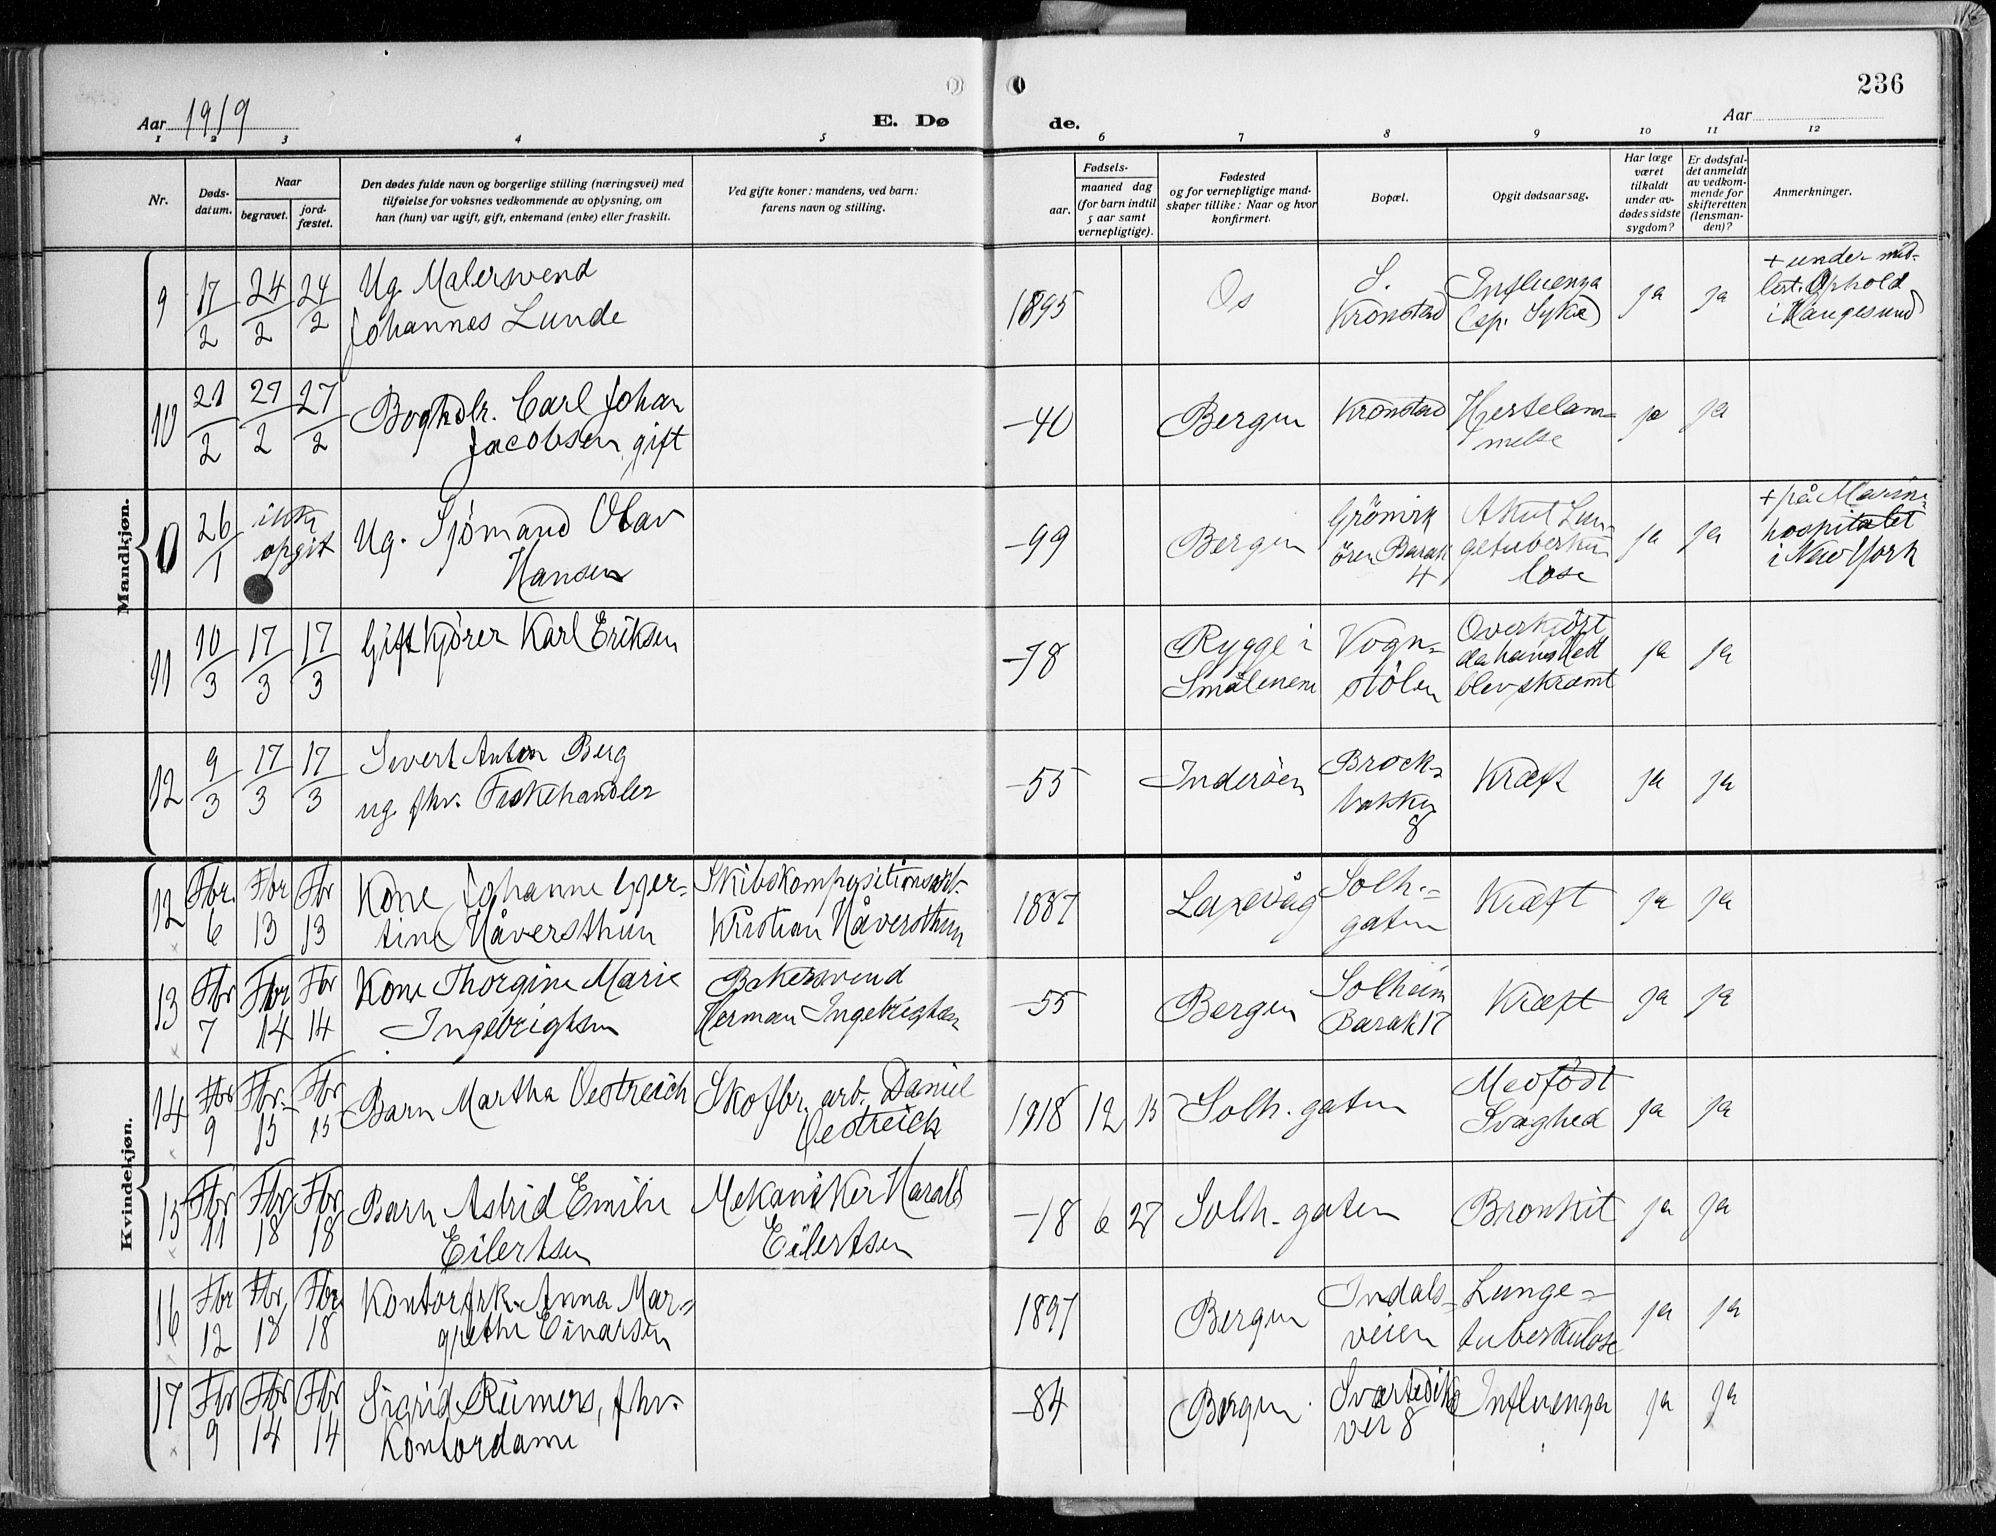 236
Aar 1919
E. Dø
de.
Aar
1 2 3 4 5 6 7 8 9 10 11 12
Nr.
Døds-
datum.
Naar
begravet.
jord-
fæstet.
Den dødes fulde navn og borgerlige stilling (næringsvei) med
tilføielse for voksnes vedkommende av oplysning, om
han (hun) var ugift, gift, enkemand (enke) eller fraskilt.
Ved gifte koner: mandens, ved barn:
farens navn og stilling.
Fødsels-
aar.
maaned dag
(for barn indtil
5 aar samt
vernepligtige).
Fødested
og for vernepligtige mand-
skaper tillike: Naar og hvor
konfirmert.
Bopæl.
Opgit dødsaarsag.
Har læge
været
tilkaldt
under av-
dødes sidste
sygdom?
Er dødsfal-
det anmeldt
av vedkom-
mende for
skifteretten
(lensman-
den)?
Anmerkninger.
Mandkjøn.
9 17/2 24/2 24/2 Ug. Malersvend
Johannes Lunde
1895 Os
S.
Kronstad
Influenza
(sp. Syke)
ja ja
+ under mid-
lert. Ophold
i Haugesund
10 21/2 27/2 27/2 Boghdlr. Carl Johan
Jacobsen, gift
-40 Bergen Kronstad Hjertelam-
melse
ja ja
0 26/1 ikke
opgit
Ug. Sjømand Olav
Hansen
-99 Bergen
ören Barak
4
Akut Lun-
getuberku
lose
ja ja
+ på Marine-
hospitalet
i New York
11 10/3 17/3 17/3 Gift Kjører Karl Eriksen
-78 Rygge i
Smålenene
Vogn-
stölen
Overkjört
da hans Hest
blev skræmt
ja ja
12 9/3 17/3 17/3 Sivert Anton Berg
ug. fhv. Fiskehandler
-55 Inderöen
bakken
8
Kræft ja ja
Kvindekjøn.
12 Fbr. 6 Fbr 13 Fbr 13 Kone Johanne Gjer-
tine Håversthun
Kristian Håversthun
1887 Laxevåg Solh.-
gaten
Kræft ja ja
13 Fbr 7 Fbr 14 Fbr 14 Kone Thorgine Marie
Ingebrigtsen
Bakersvend
Herman Ingebrigtsen
-55 Bergen Solheim
Barak 17
Kræft ja ja
14 Fbr 9 Fbr. 15 Fbr 15 Barn Martha Oestreich
Skofbr. arb. Daniel
Oestreich
1918 12 15 Solh. gaten
Medfödt
Svaghed
ja ja
15 Fbr 11 Fbr 18 Fbr 18 Barn Astrid Emilie
Eilertsen
Mekaniker Harald
Eilertsen
-18 6 27 Solh. gaten Bronkit ja ja
16 Fbr 12 Fbr. 18 Fbr. 18 Kontorfrk. Anna Mar-
grethe Einarsen
1897 Bergen Indals-
veien
Lunge-
tuberkulose
ja ja
17 Fbr 9 Fbr 14 Fbr 14 Sigrid Reimers, fhv.
Kontordame
-84 Bergen Svartedik
vei 8
Influenza ja ja